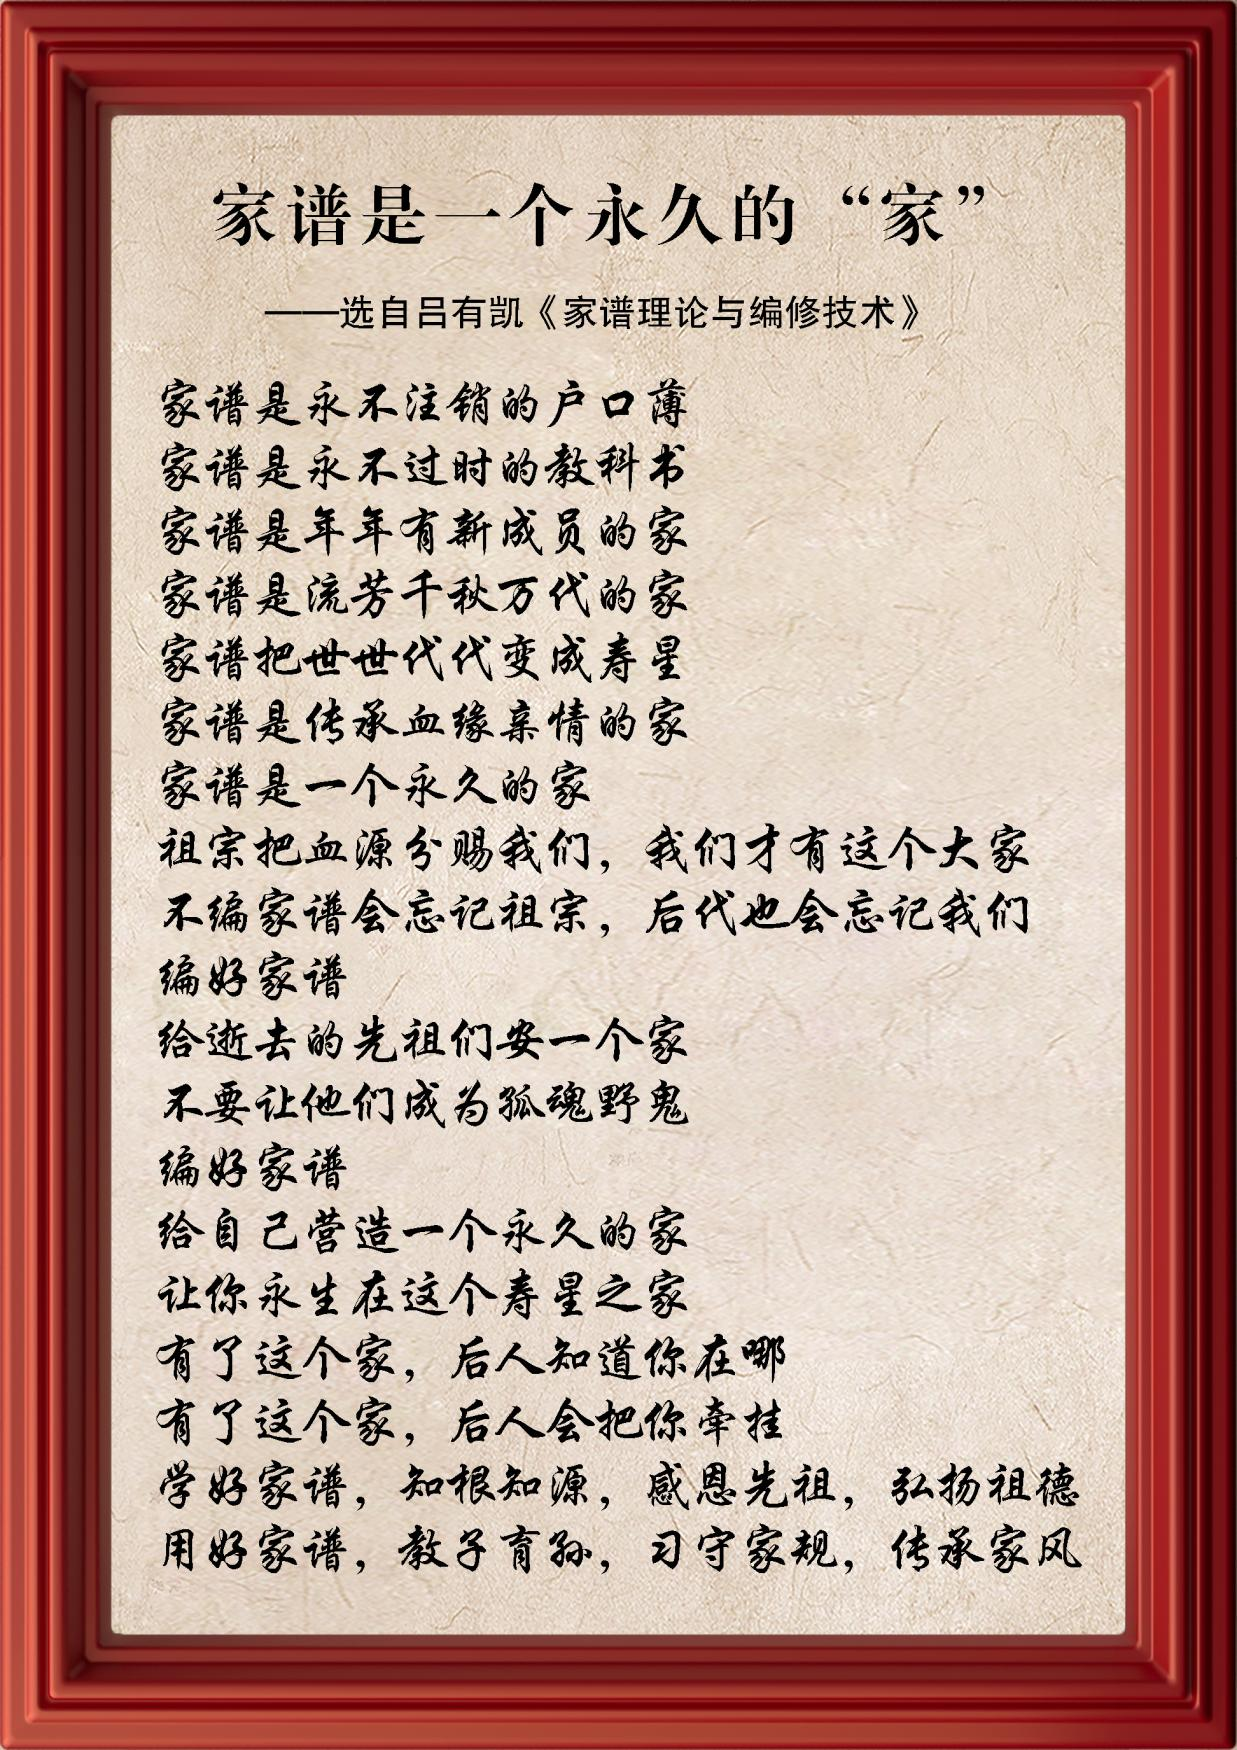 家谱是一个永久的“家”
——选自吕有凯《家谱理论与编修技术》
家谱是永不注销的户口薄
家谱是永不过时的教科书
家谱是年年有新成员的家
家谱是流芳千秋万代的家
家谱把世世代代变成寿星
家谱是传承血缘亲情的家
家谱是一个永久的家
祖宗把血源分赐我们，我们才有这个大家
不编家谱会忘记祖宗，后代也会忘记我们
编好家谱
给逝去的先祖们安一个家
不要让他们成为孤魂野鬼
编好家谱
给自己营造一个永久的家
让你永生在这个寿星之家
有了这个家，后人知道你在哪
有了这个家，后人会把你牵挂
学好家谱，知根知源，感恩先祖，弘扬祖德
用好家谱，教子育孙，习守家规，传承家风